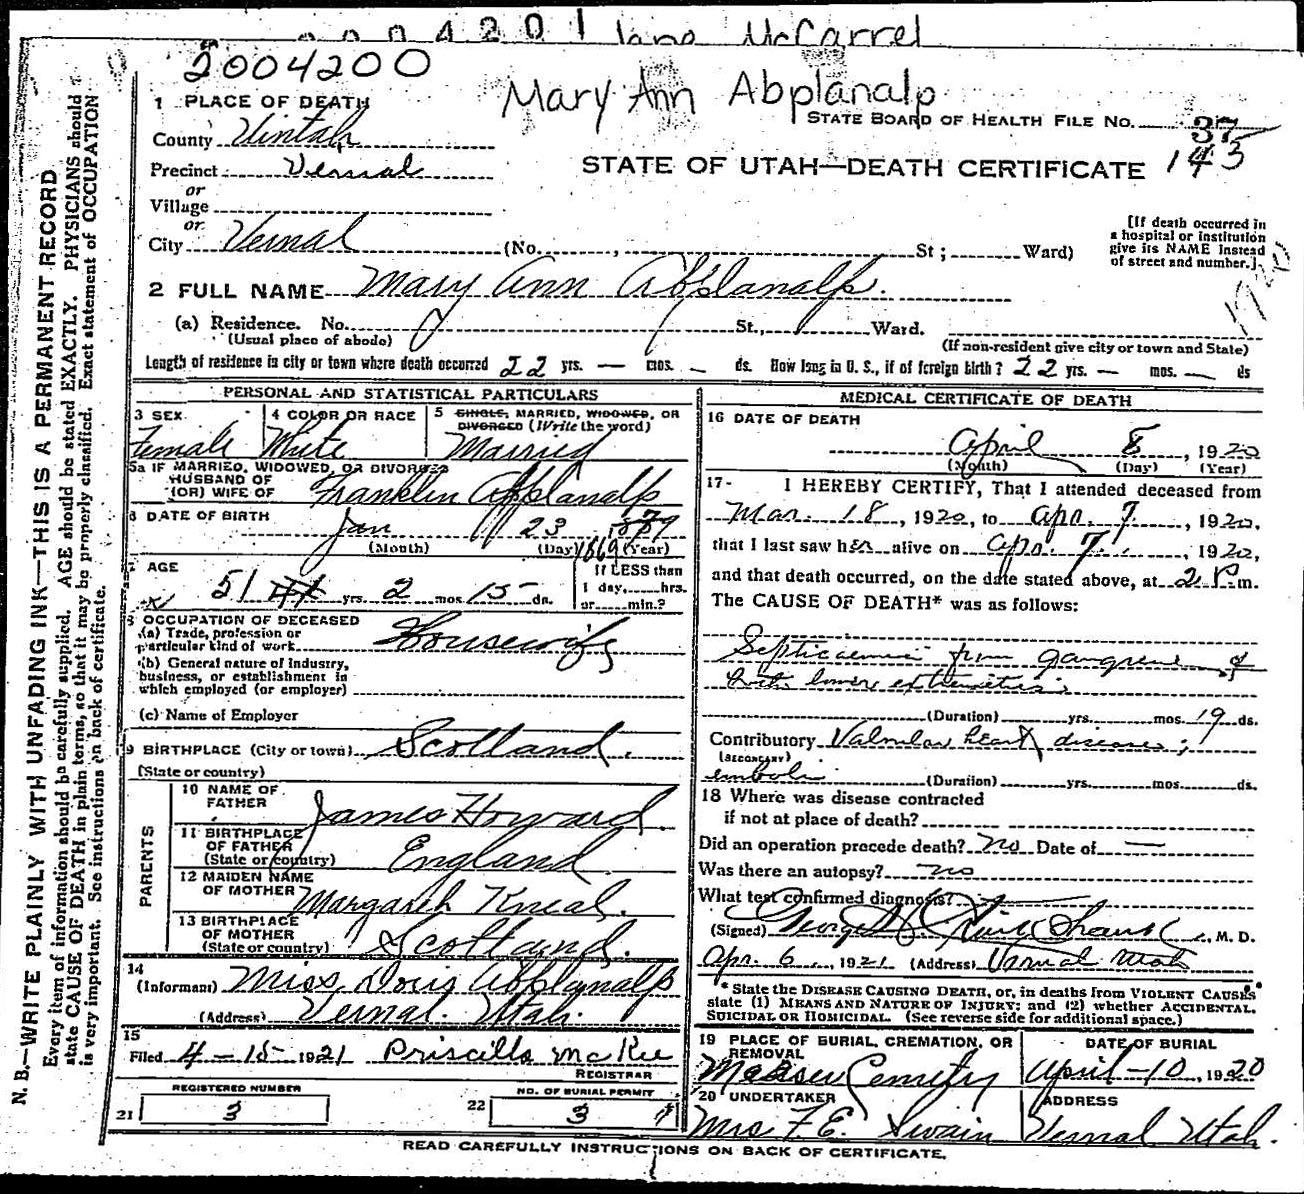 2004201 Jane McCarrel
2004200
Mary Ann Abplanalp
1 PLACE OF DEATH
STATE BOARD OF HEALTH FILE NO. 37
County Uintah
143
Precinct Vernal
STATE OF UTAH—DEATH CERTIFICATE
or
Village
or
City Vernal (No. , St; Ward)
[If death occurred in a hospital or institution give its NAME instead of street and number.]
2 FULL NAME Mary Ann Abplanalp.
(a) Residence. No. St., Ward.
(Usual place of abode) (If non-resident give city or town and State)
Length of residence in city or town where death occurred 22 yrs. — mos. - ds. How long in U. S., if of foreign birth? 22 yrs. — mos. — ds
PERSONAL AND STATISTICAL PARTICULARS
3 SEX 4 COLOR OR RACE 5 SINGLE, MARRIED, WIDOWED, OR DIVORCED (Write the word)
Female White Married
5a IF MARRIED, WIDOWED, OR DIVORCED
HUSBAND OF
(OR) WIFE OF Franklin Abplanalp
6 DATE OF BIRTH
Jan 23 1879
(Month) (Day) 1869 (Year)
7 AGE
51 yrs. 2 mos 15 ds.
If LESS than
1 day, hrs.
or min.?
8 OCCUPATION OF DECEASED
(a) Trade, profession or
particular kind of work Housewife
(b) General nature of industry,
business, or establishment in
which employed (or employer)
(c) Name of Employer
9 BIRTHPLACE (City or town) Scotland.
(State or country)
PARENTS
10 NAME OF FATHER James Howard
11 BIRTHPLACE OF FATHER
(State or country) England
12 MAIDEN NAME OF MOTHER Margaret Kneal.
13 BIRTHPLACE OF MOTHER
(State or country) Scotland.
14
(Informant) Miss Doris Abplanalp
(Address) Vernal. Utah.
15
Filed 4-15-1921 Priscilla McKee
REGISTRAR
REGISTERED NUMBER NO. OF BURIAL PERMIT
21 3 22 3
MEDICAL CERTIFICATE OF DEATH
16 DATE OF DEATH
April 8, 1920
(Month) (Day) (Year)
17- I HEREBY CERTIFY, That I attended deceased from
Mar. 18, 1920, to Apr. 7, 1920,
that I last saw her alive on Apr. 7, 1920,
and that death occurred, on the date stated above, at 2 P.m.
The CAUSE OF DEATH* was as follows:
Septicaemia from gangrene of
both lower extremities.
(Duration) yrs. mos. 19 ds.
Contributory Valvular heart disease;
(SECONDARY)
emboli (Duration) yrs. mos. ds.
18 Where was disease contracted
if not at place of death?
Did an operation precede death? No Date of —
Was there an autopsy? no
What test confirmed diagnosis?
(Signed) George , M. D.
Apr. 6, 1921 (Address) Vernal Utah
* State the DISEASE CAUSING DEATH, or, in deaths from VIOLENT CAUSES
state (1) MEANS AND NATURE OF INJURY; and (2) whether ACCIDENTAL,
SUICIDAL OR HOMICIDAL. (See reverse side for additional space.)
19 PLACE OF BURIAL, CREMATION, OR REMOVAL DATE OF BURIAL
Maeser Cemetery April-10, 1920
20 UNDERTAKER ADDRESS
Mrs F. E. Swain Vernal Utah.
READ CAREFULLY INSTRUCTIONS ON BACK OF CERTIFICATE.
N. B.—WRITE PLAINLY WITH UNFADING INK—THIS IS A PERMANENT RECORD
Every item of information should be carefully supplied. AGE should be stated EXACTLY. PHYSICIANS should
state CAUSE OF DEATH in plain terms, so that it may be properly classified. Exact statement of OCCUPATION
is very important. See instructions on back of certificate.